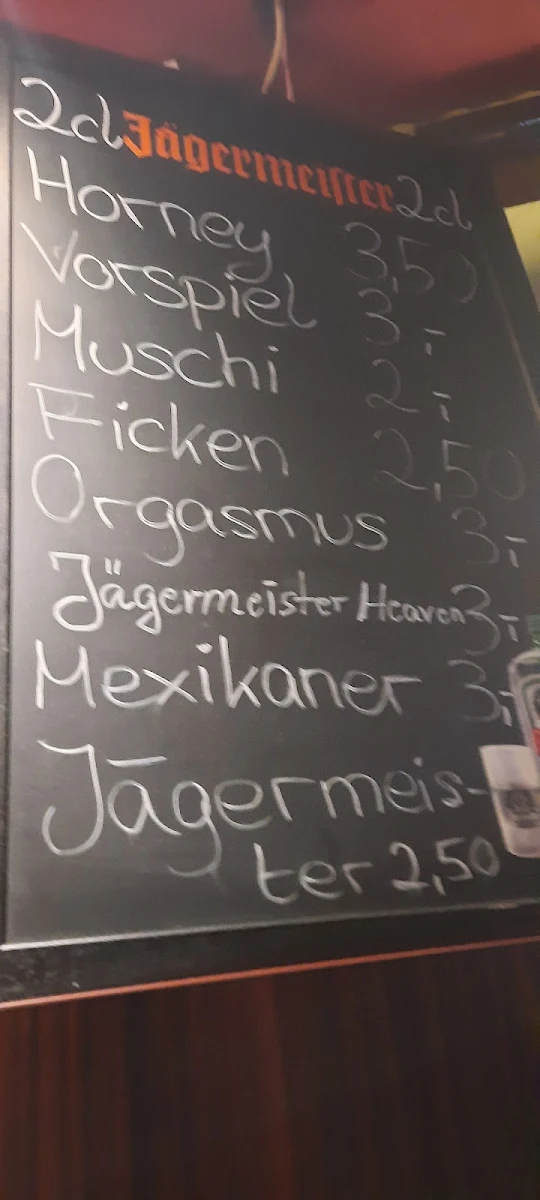 2cl Jägermeister 2cl
Horney 3,50
Vorspiel 3,-
Muschi 2,-
Ficken 2,50
Orgasmus 3,-
Jägermeister Heaven 3,-
Mexikaner 3,-
Jāgermeis-
ter 2,50